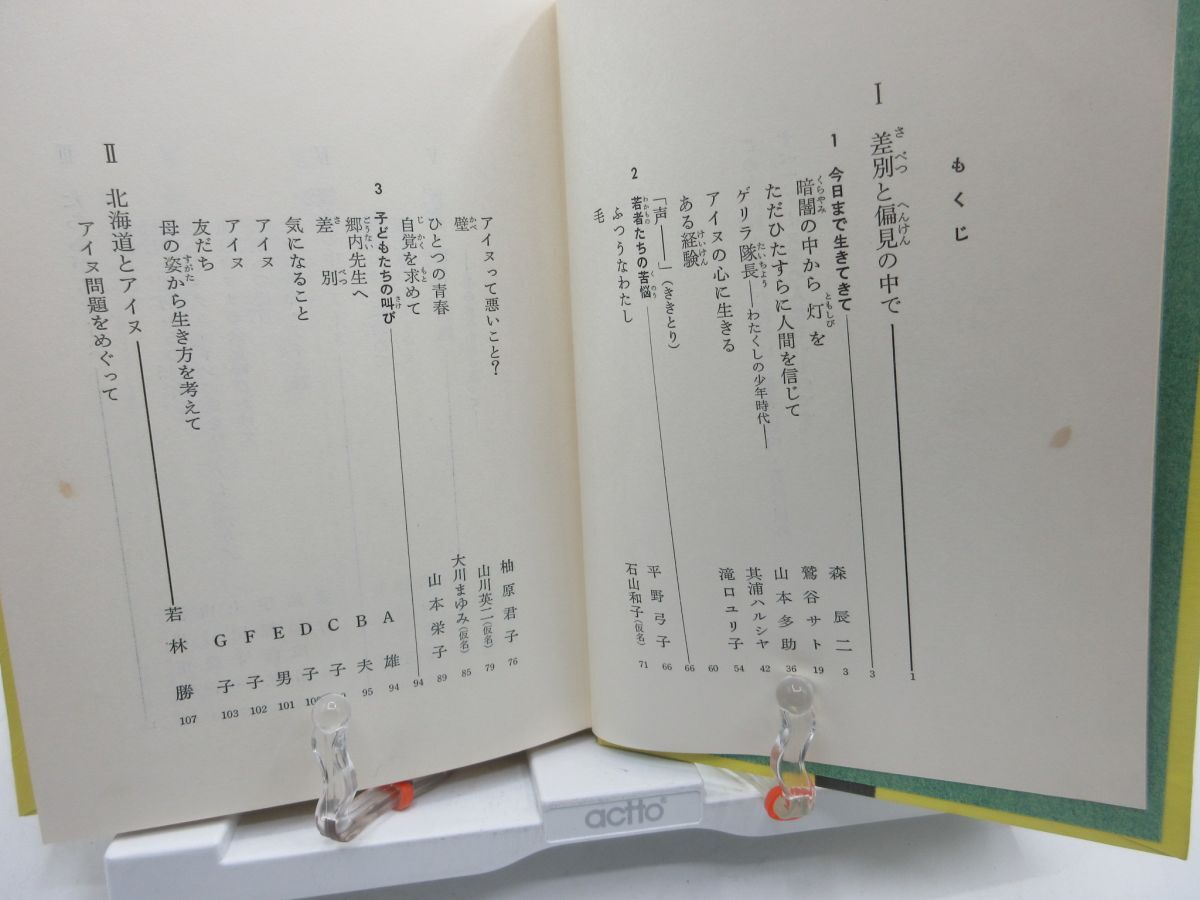 もくじ
Ⅰ 差別と偏見の中で――― 1
1 今日まで生きてきて――― 3
暗闇の中から灯を 森辰二 3
ただひたすらに人間を信じて 鷲谷サト 19
ゲリラ隊長――わたくしの少年時代―― 山本多助 36
アイヌの心に生きる 其浦ハルシヤ 42
ある経験 滝口ユリ子 54
「声――」(ききとり) 60
2 若者たちの苦悩――― 66
ふつうなわたし 平野弓子 66
毛 石山和子(仮名) 71
アイヌって悪いこと? 柚原君子 76
壁 山川英二(仮名) 79
ひとつの青春 大川まゆみ(仮名) 85
自覚を求めて 山本栄子 89
3 子どもたちの叫び――― 94
郷内先生へ A雄 94
差別 B夫 95
気になること C子
アイヌ D子
アイヌ E男 101
友だち F子 102
母の姿から生き方を考えて G子 103
Ⅱ 北海道とアイヌ――― 若林勝 107
アイヌ問題をめぐって
actto